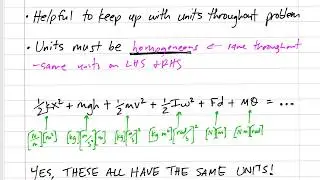 • Helpful to keep up with units throughout problem
• Units must be homogeneous ← same throughout
-same units on LHS & RHS
½kx² + mgh + ½mv² + ½Iω² + Fd + Mθ = ...
[N/m][m²] [kg][m/s²][m] [kg][m/s]² [kg m²][rad/s]² [N][m] [N m][rad]
YES, THESE ALL HAVE THE SAME UNITS!